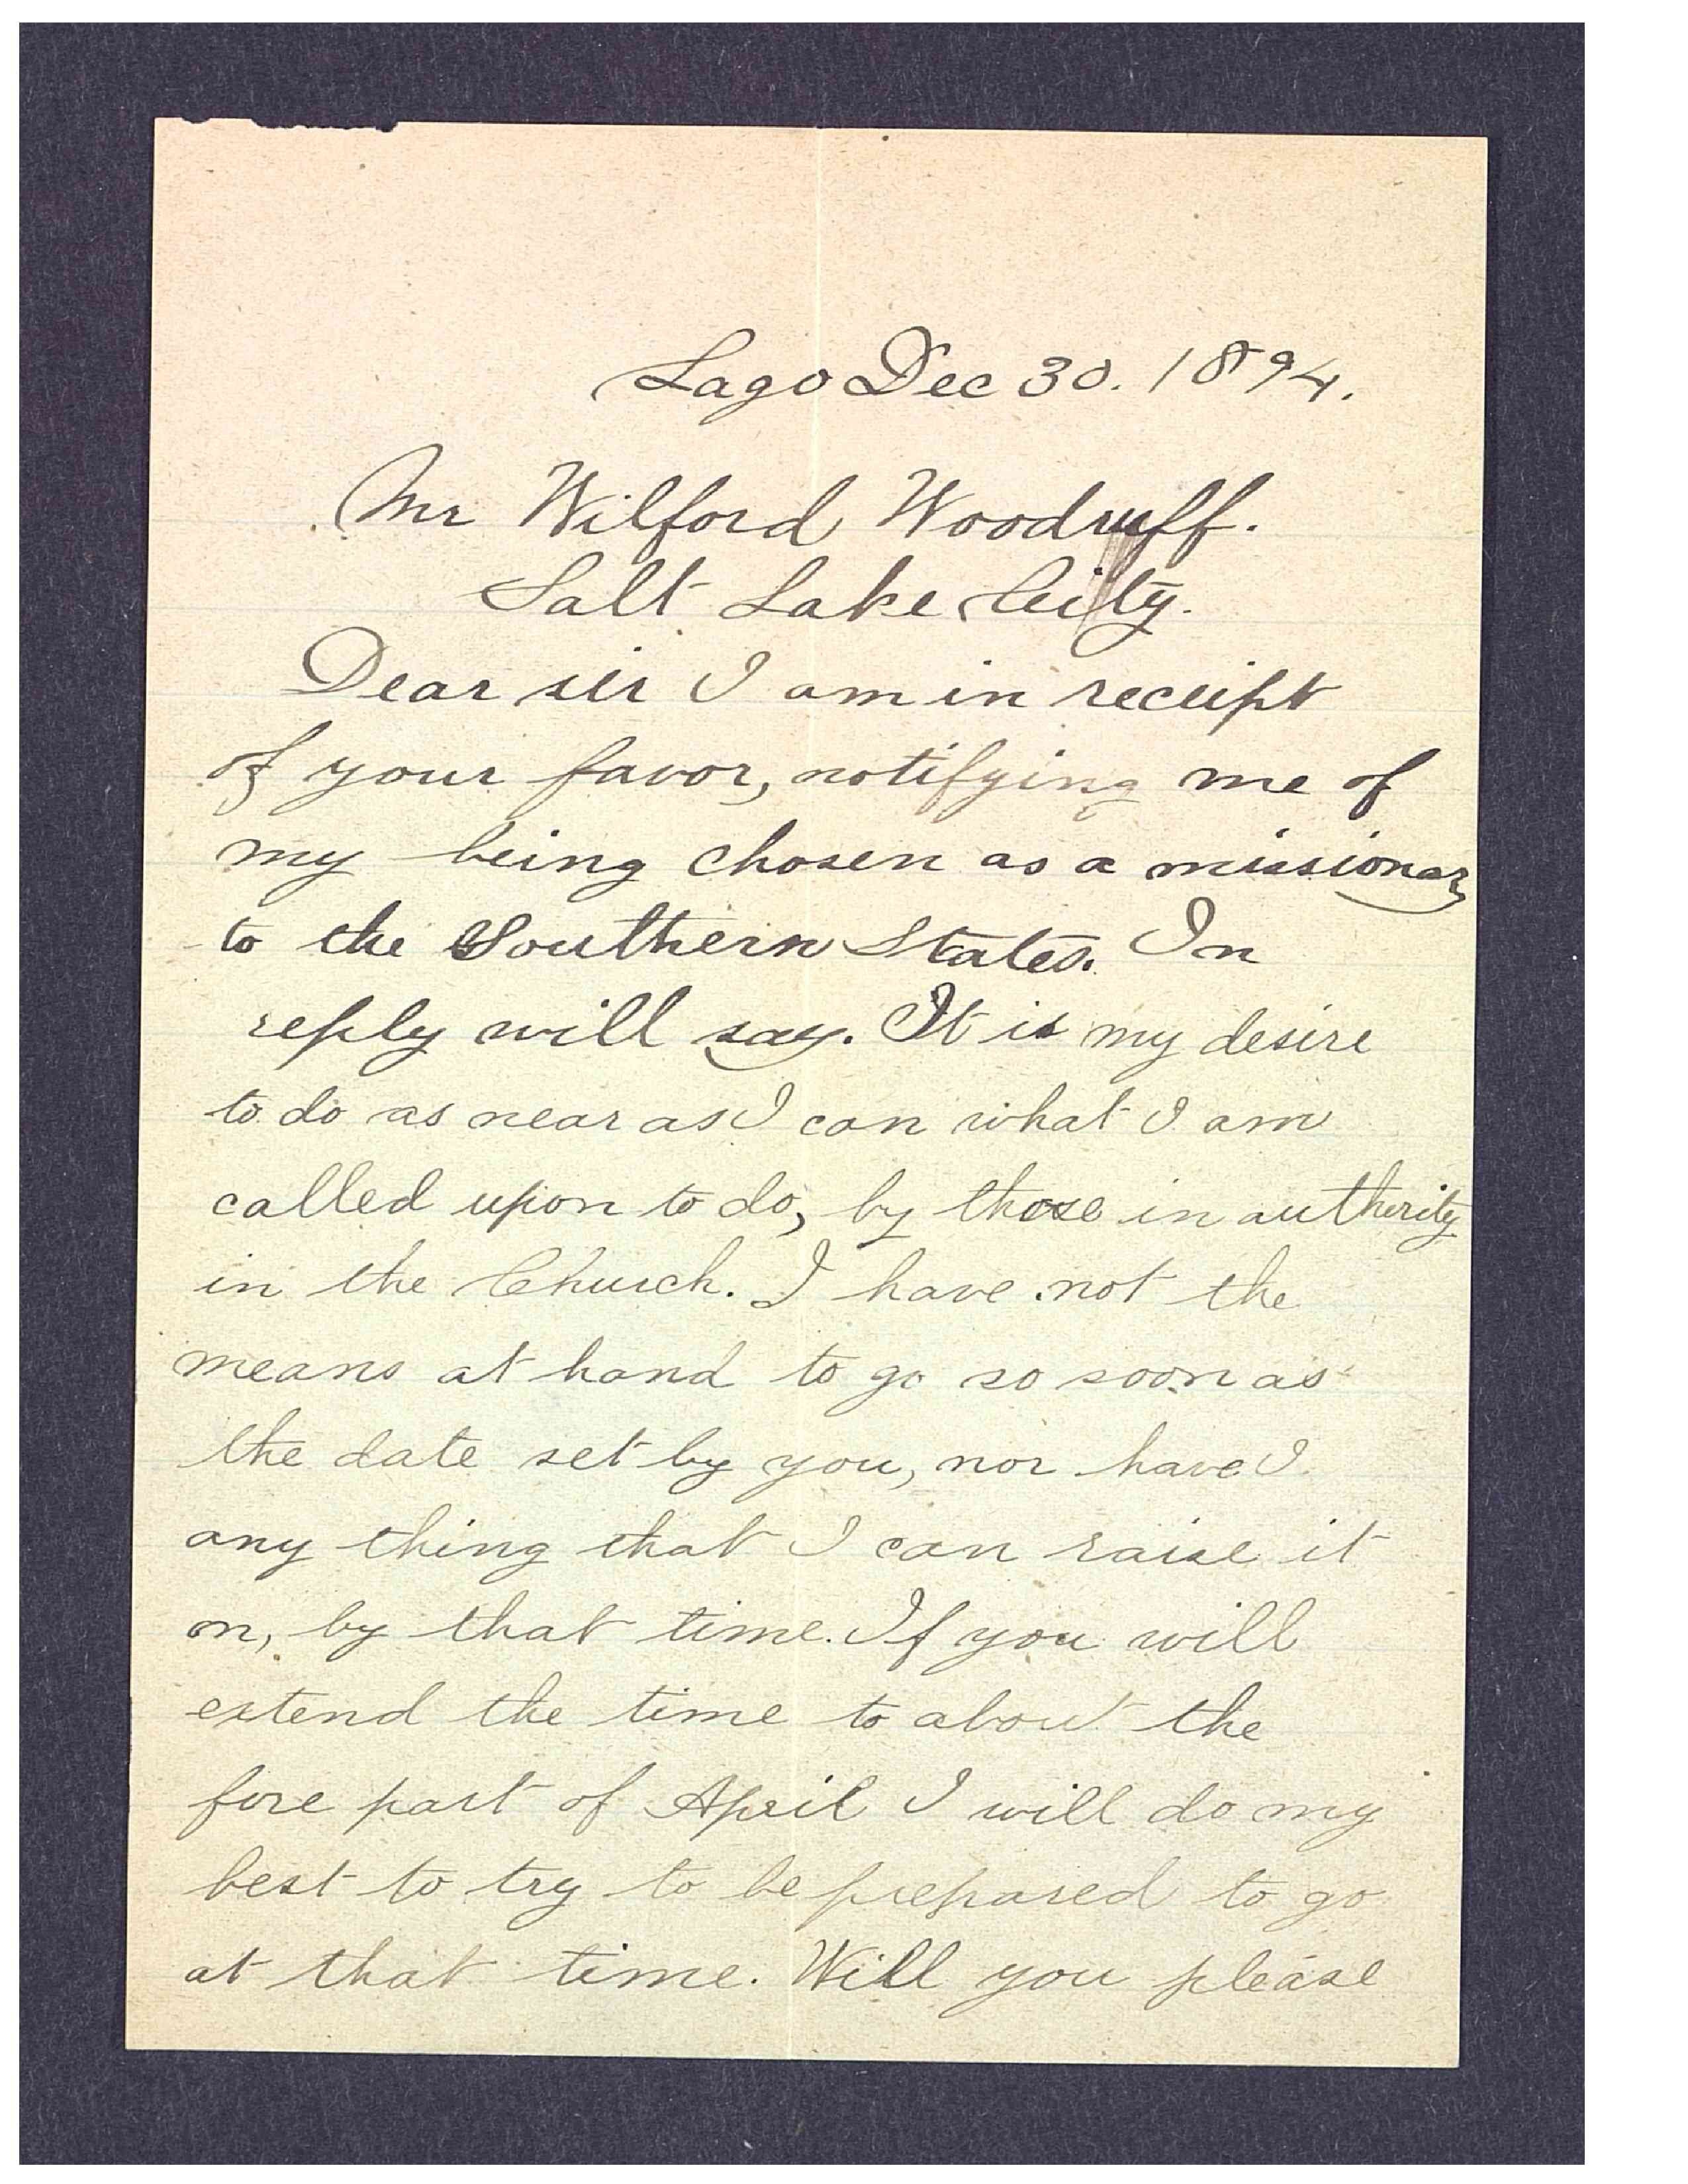 Lago Dec 30. 1894.
Mr Wilford Woodruff.
Salt Lake City.
Dear sir I am in receipt
of your favor, notifying me of
my being chosen as a missionary
to the Southern States. In
reply will say. It is my desire
to do as near as I can what I am
called upon to do, by those in autherity
in the Church. I have not the
means at hand to go so soon as
the date set by you, nor have I
any thing that I can raise it
on, by that time. If you will
extend the time to about the
fore part of April I will do my
best to try to be prepared to go
at that time. Will you please